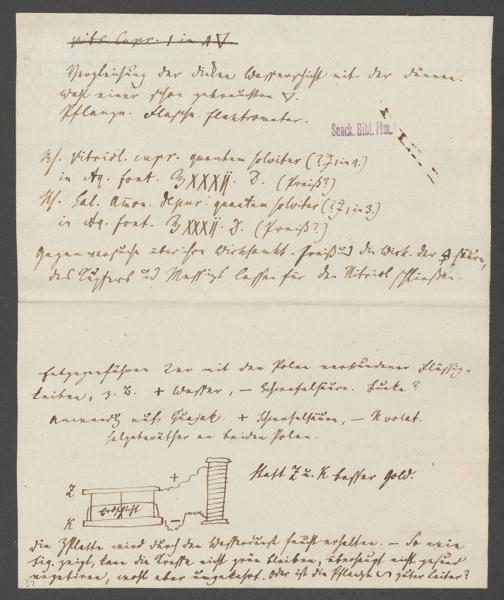 Vitr. Cupr. 1 in 1 🜄
Vergleichung der dicken Wasserschicht mit der dünnen.
Wahl einer schon gebrauchten 🜄.
Pflanze. Flasche. Elektrometer.
Senck. Bibl. Ffm.
Rf. Vitriol. cupr. quantum solvitur (? I, in 4.)
in Aq. font. ℥ XXXII. D. (Preiß?)
Rf. Sal. Amon. depur. quantum solvitur (? I, in 3.)
in Aq. font. ℥ XXXII. D. (Preiß?)
Gegenversuche über ihre Wirksamkt. Preiß und die Wirk. der
des Kupfers und Messings lassen für den Vitriol schließen.
Entgegenführen 2er mit den Polen verbundener Flüssig-
keiten, z. B. + Wasser, – Schwefelsäure. Funke?
Anwendg auf Guajak. + Schwefelsäure, – K volat.
Salpeteräther an beiden Polen.
statt Z u. K besser Gold.
Z
+
K
–
Erdschicht
Die Zplatte wird durch den Wasserdunst feucht erhalten. – So wie
Fig. zeigt, kann die Kresse nicht grün bleiben, überhaupt nicht gesund
vegetiren, wohl aber umgekehrt. Oder ist die Pflanze guter Leiter?
32